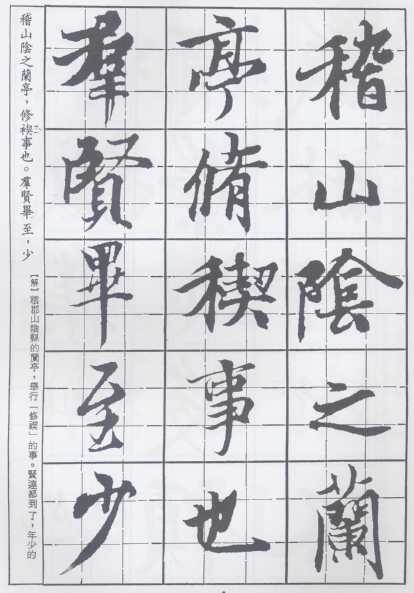 稽山陰之蘭
亭脩稧事也
羣賢畢至少
稽山陰之蘭亭，修禊事也。羣賢畢至，少
【解】稽郡山陰縣的蘭亭，舉行「修禊」的事。賢達都到了，年少的